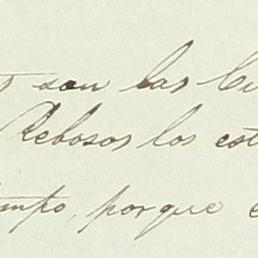 son las
Rebosos los est
empo, porque e